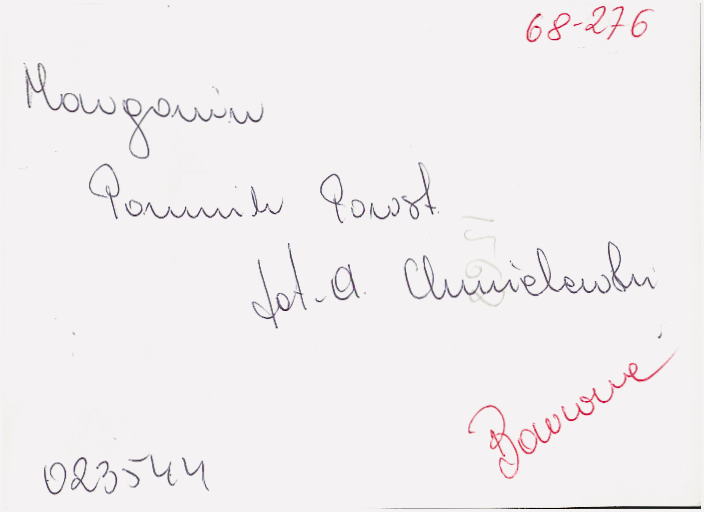 68-276
Margonin
Pomnik Powst.
fot. A. Chmielewski
023544